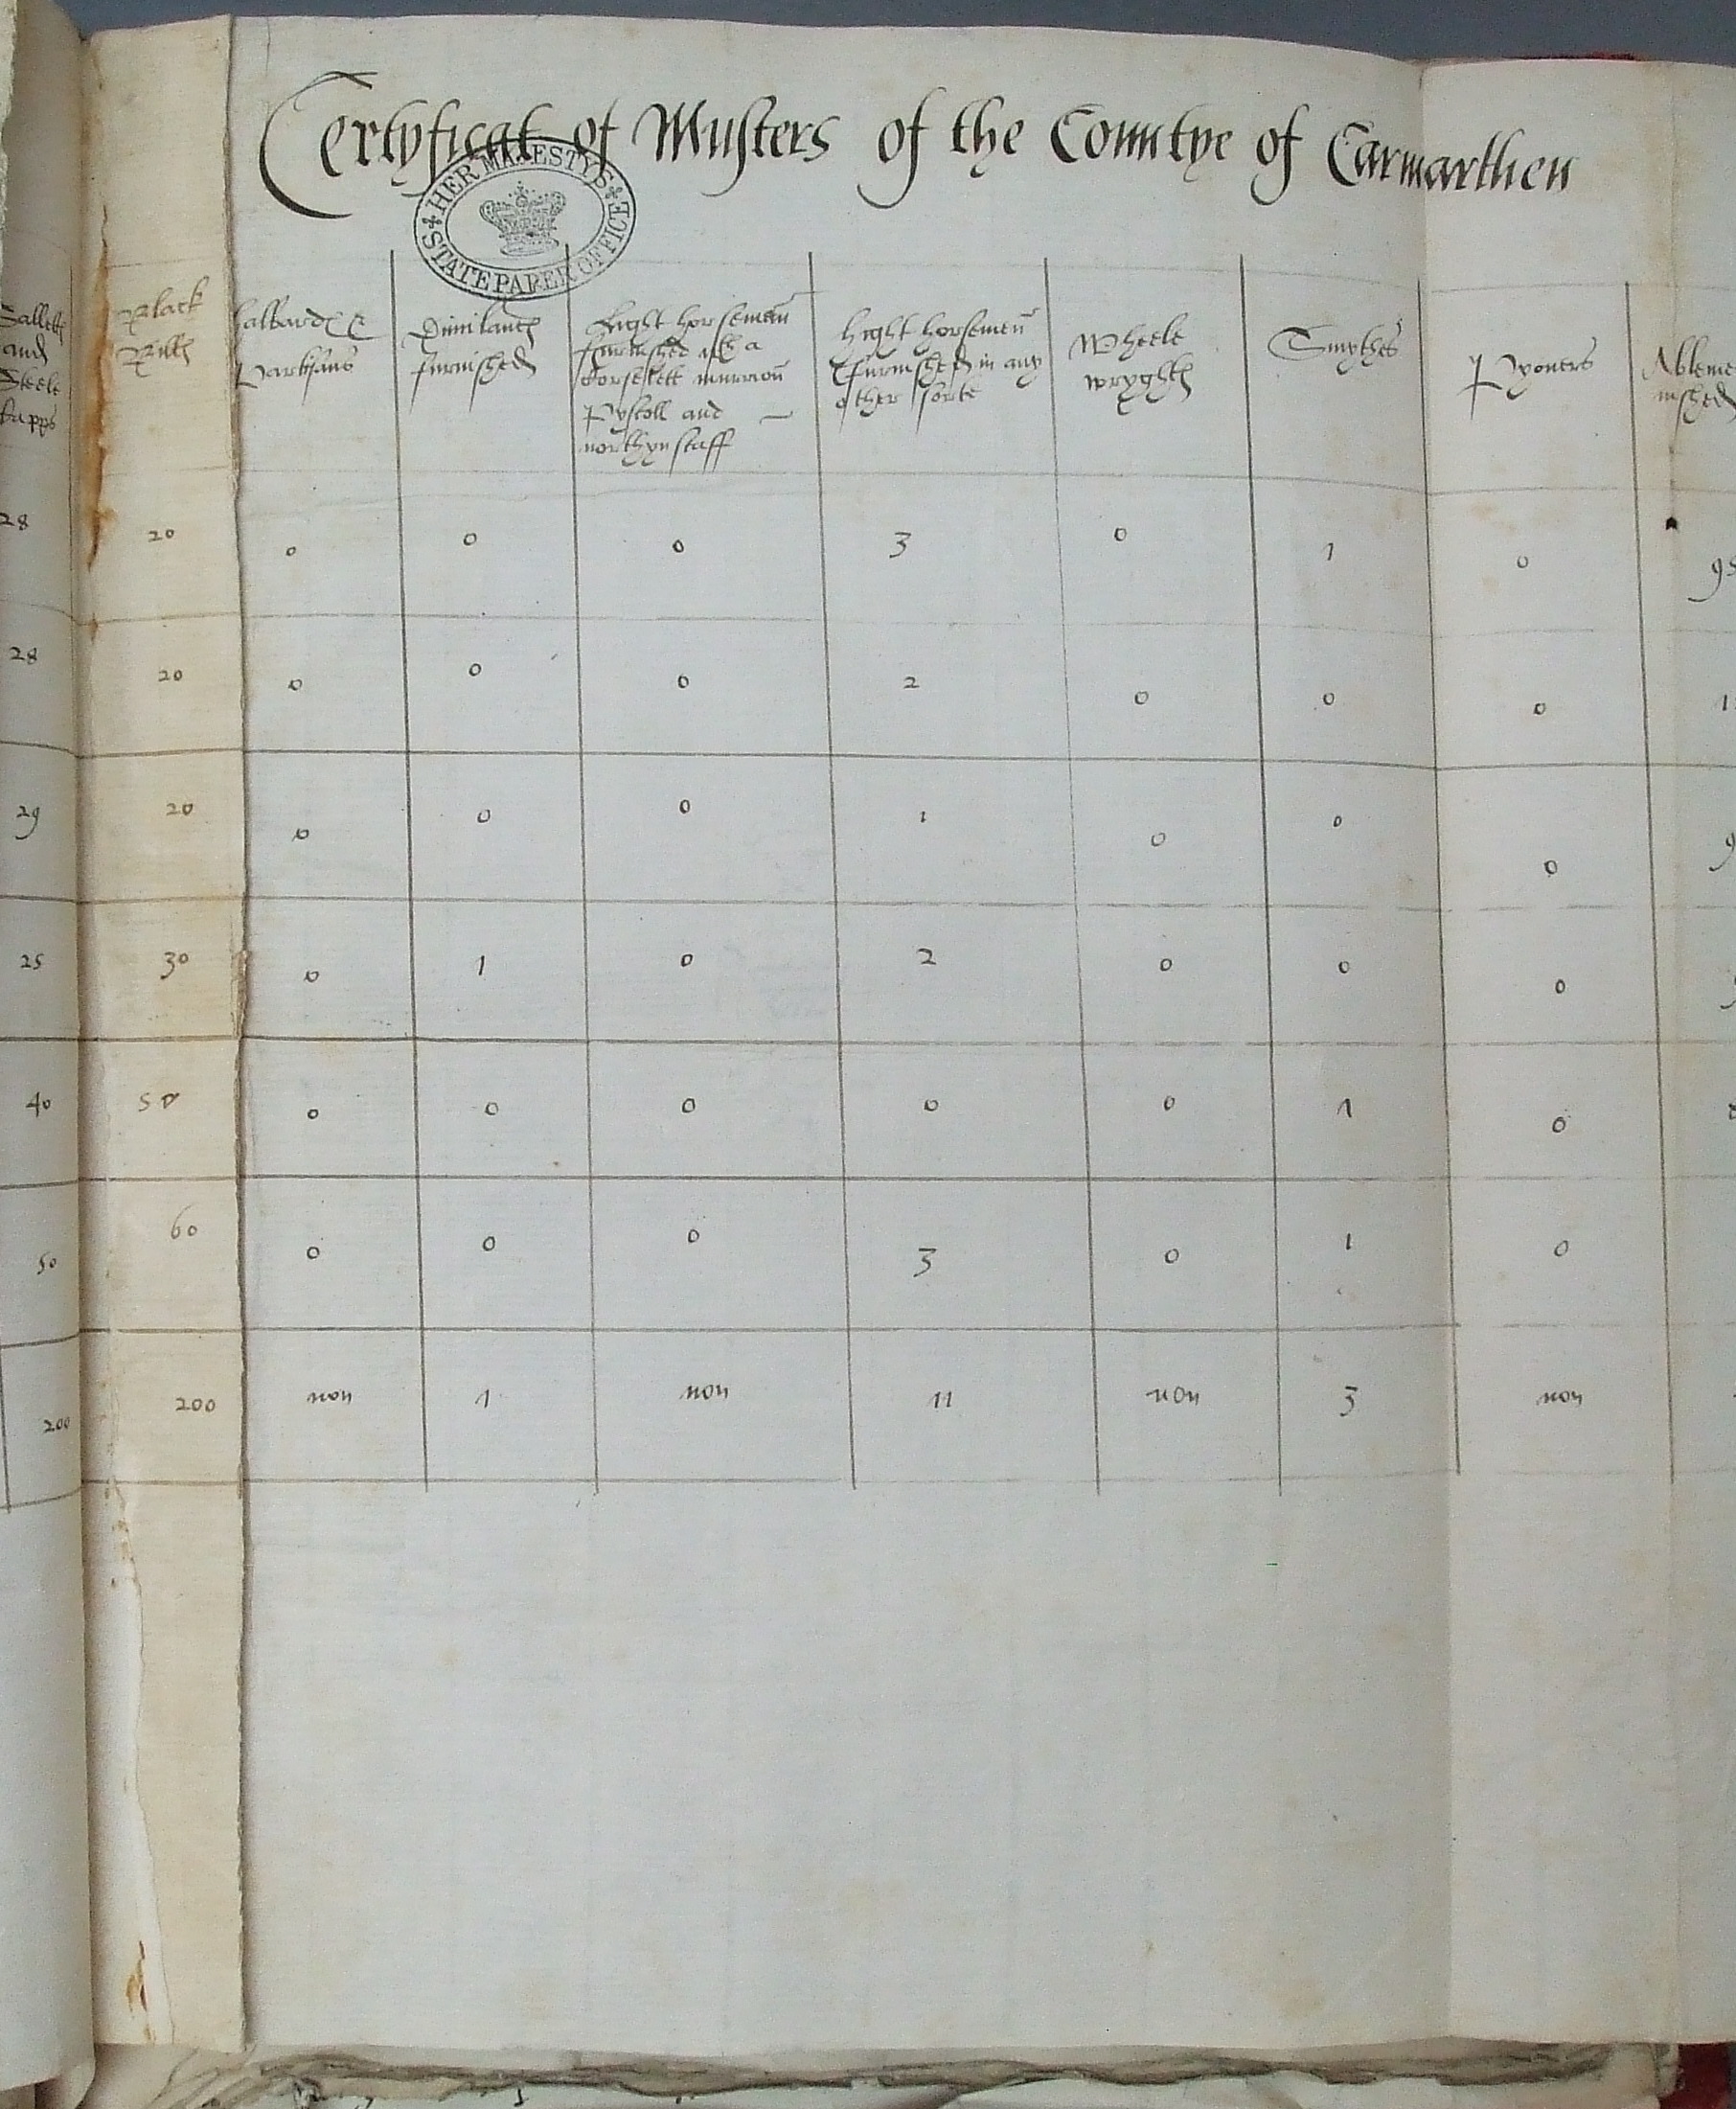 Certyficat of Musters of the Countye of Carmarthen
HER MAJESTY'S STATE PAPER OFFICE
Sallett
and
Steele
Capps
Black
Bills
halbard &
Partisans
Dimilances
furnished
Light horsemen
furnished with a
Corselett murrion
Pystoll and
northyn staff
Light horsemen
furnished in any
other sorte
Wheele
wryghts
Smythes
Pyoners
Ableme
nished
28 20 0 0 0 3 0 1 0 95
28 20 0 0 0 2 0 0 0 1
29 20 0 0 0 1 0 0 0 9
25 30 0 1 0 2 0 0 0
40 50 0 0 0 0 0 1 0
50 60 0 0 0 3 0 1 0
200 200 non 1 non 11 non 3 non